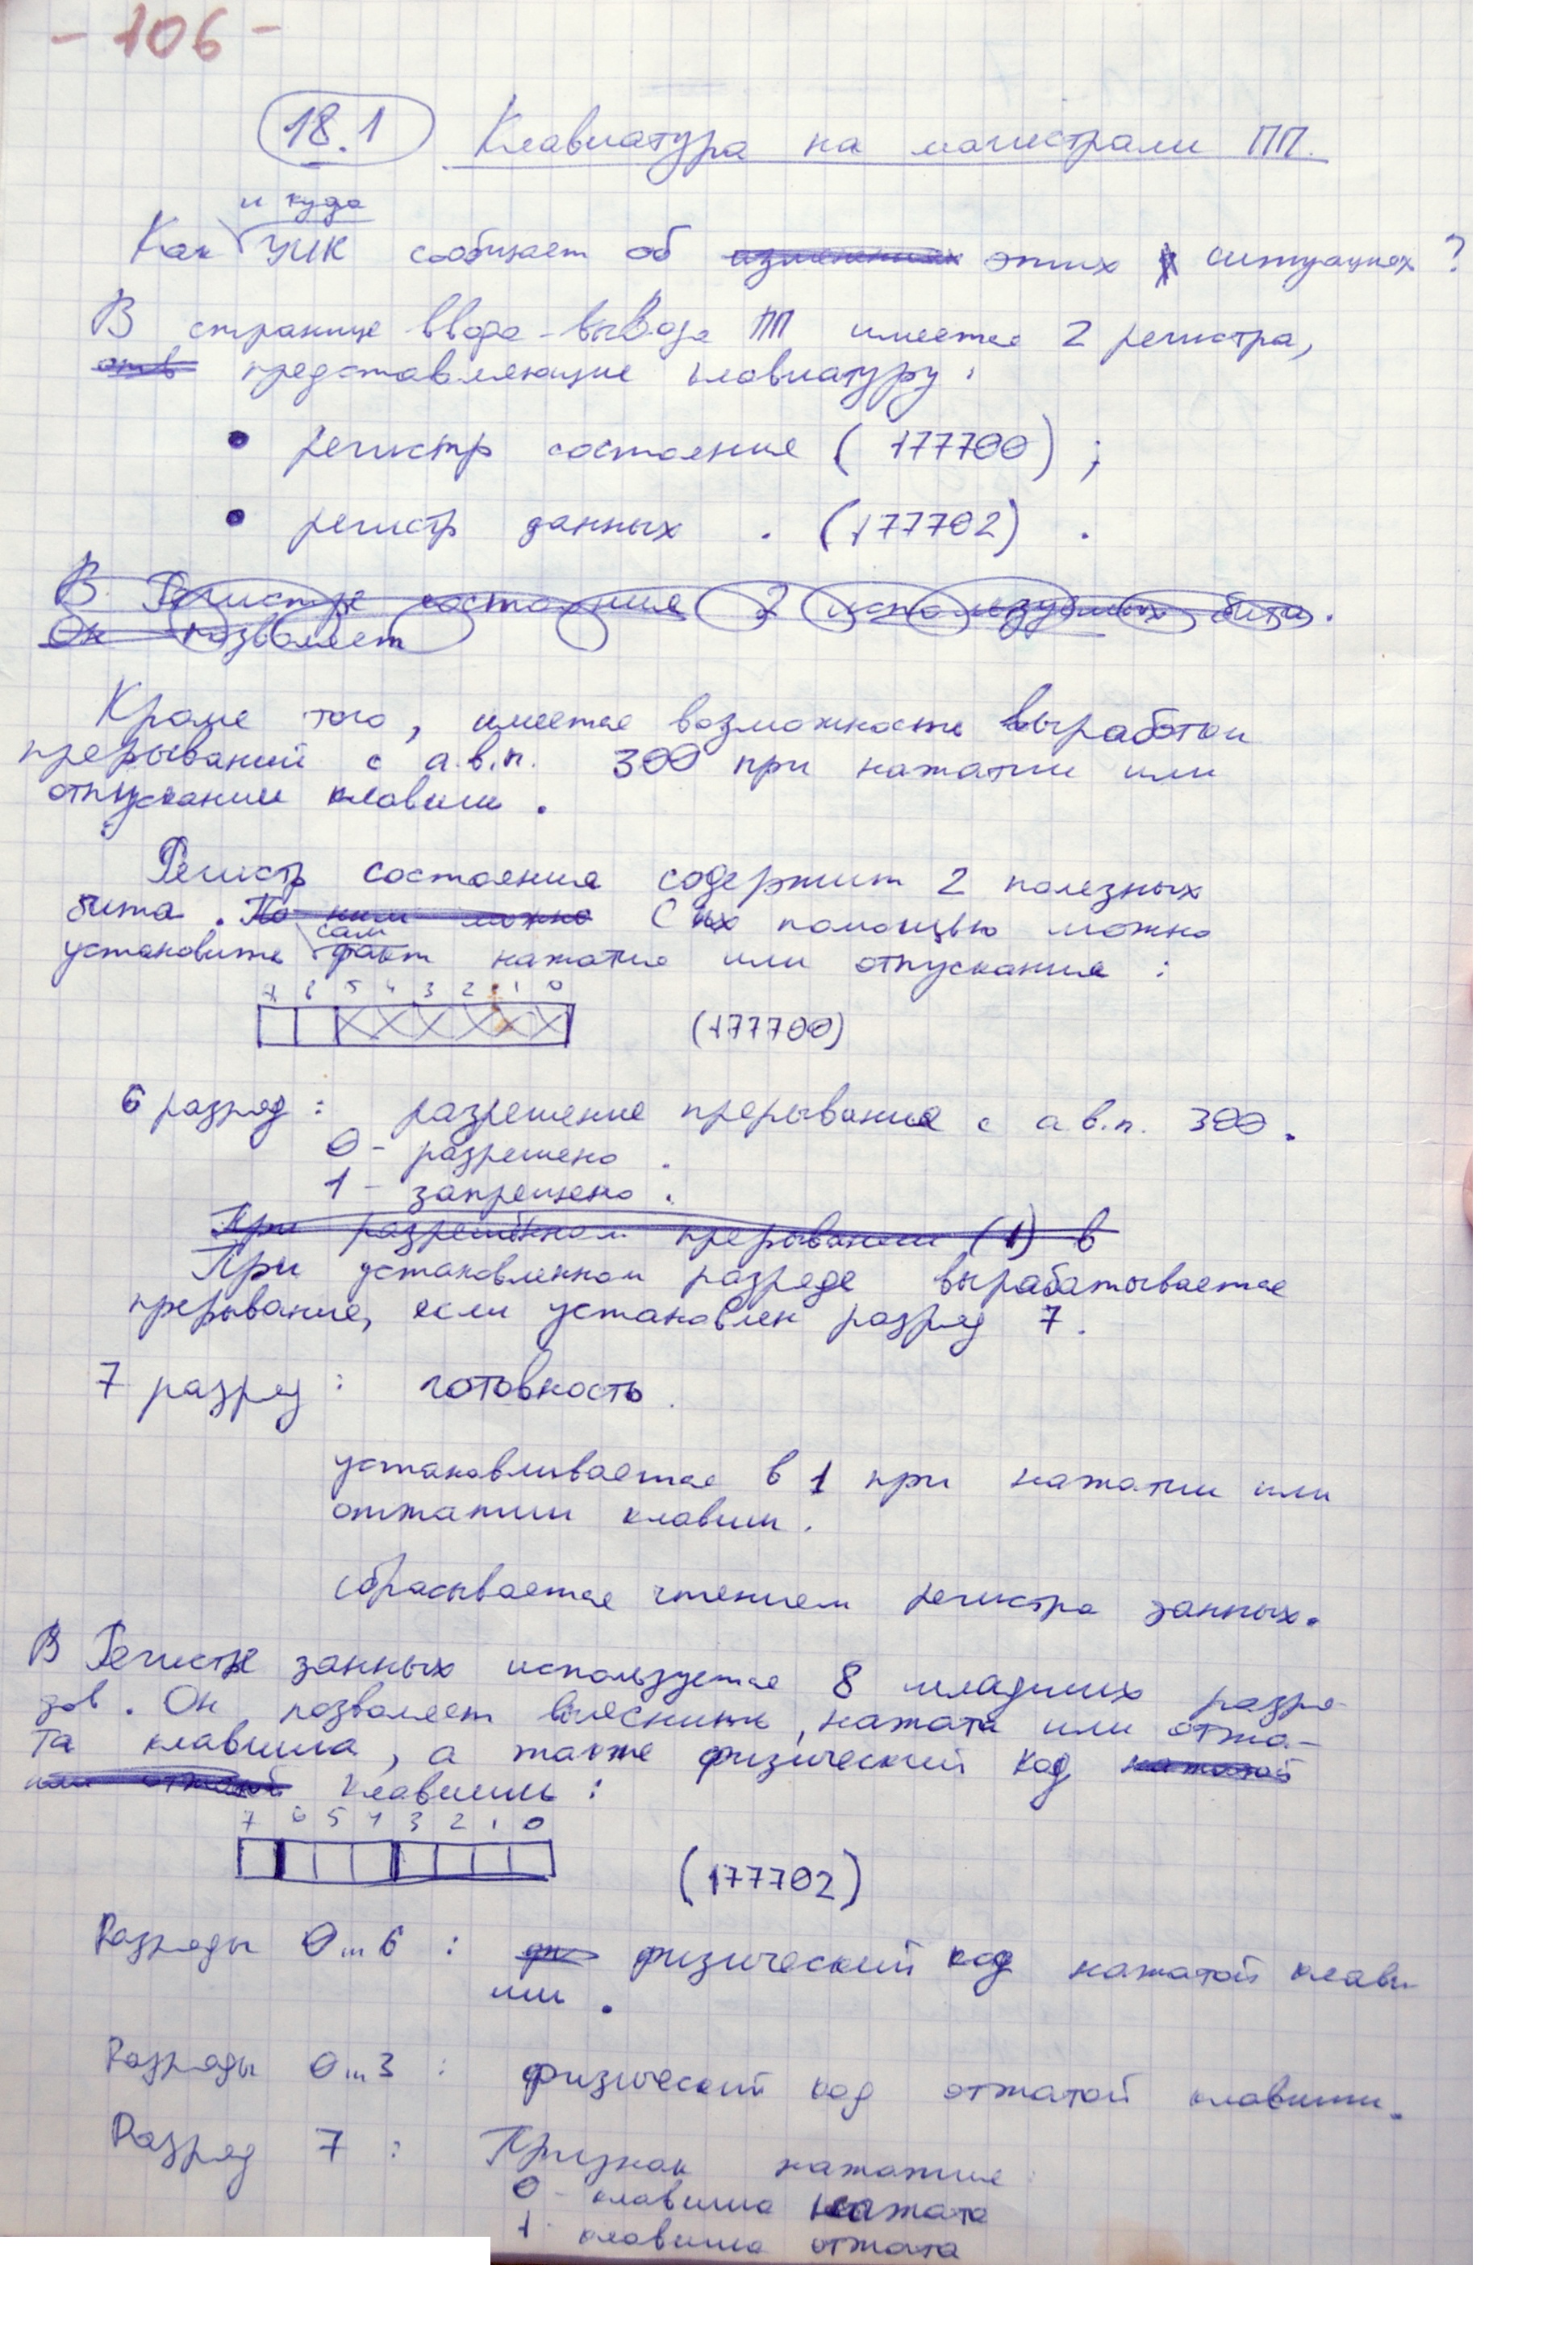 - 106 -
18.1 Клавиатура на магистрали ПП.
и куда
Как УИК сообщает об изменениях этих ситуациях ?
В странице ввода-вывода ПП имеется 2 регистра,
отв представляющие клавиатуру:
• регистр состояния (177700) ;
• регистр данных . (177702) .
В Регистре состояния 2 используемых бита .
Он позволяет
Кроме того, имеется возможность выработки
прерываний с а.в.п. 300 при нажатии или
отпускании клавиши .
Регистр состояния содержит 2 полезных
бита . По ним можно С их помощью можно
сам
установить факт нажатия или отпускания :
7 6 5 4 3 2 1 0
(177700)
6 разряд : разрешение прерывания с а.в.п. 300 .
0 - разрешено .
1 - запрещено .
При разрешённом прерывании (1) в
При установленном разряде вырабатывается
прерывание, если установлен разряд 7 .
7 разряд : готовность .
устанавливается в 1 при нажатии или
отжатии клавиш .
сбрасывается чтением регистра данных .
В Регистре данных используется 8 младших разря-
дов . Он позволяет выяснить, нажата или отжа-
та клавиша, а также физический код нажатой
или отжатой клавиши :
7 6 5 4 3 2 1 0
(177702)
Разряды 0...6 : физический код нажатой клави
ши .
Разряды 0...3 : физический код отжатой клавиши .
Разряд 7 : Признак нажатия
0 - клавиша нажата
1 - клавиша отжата